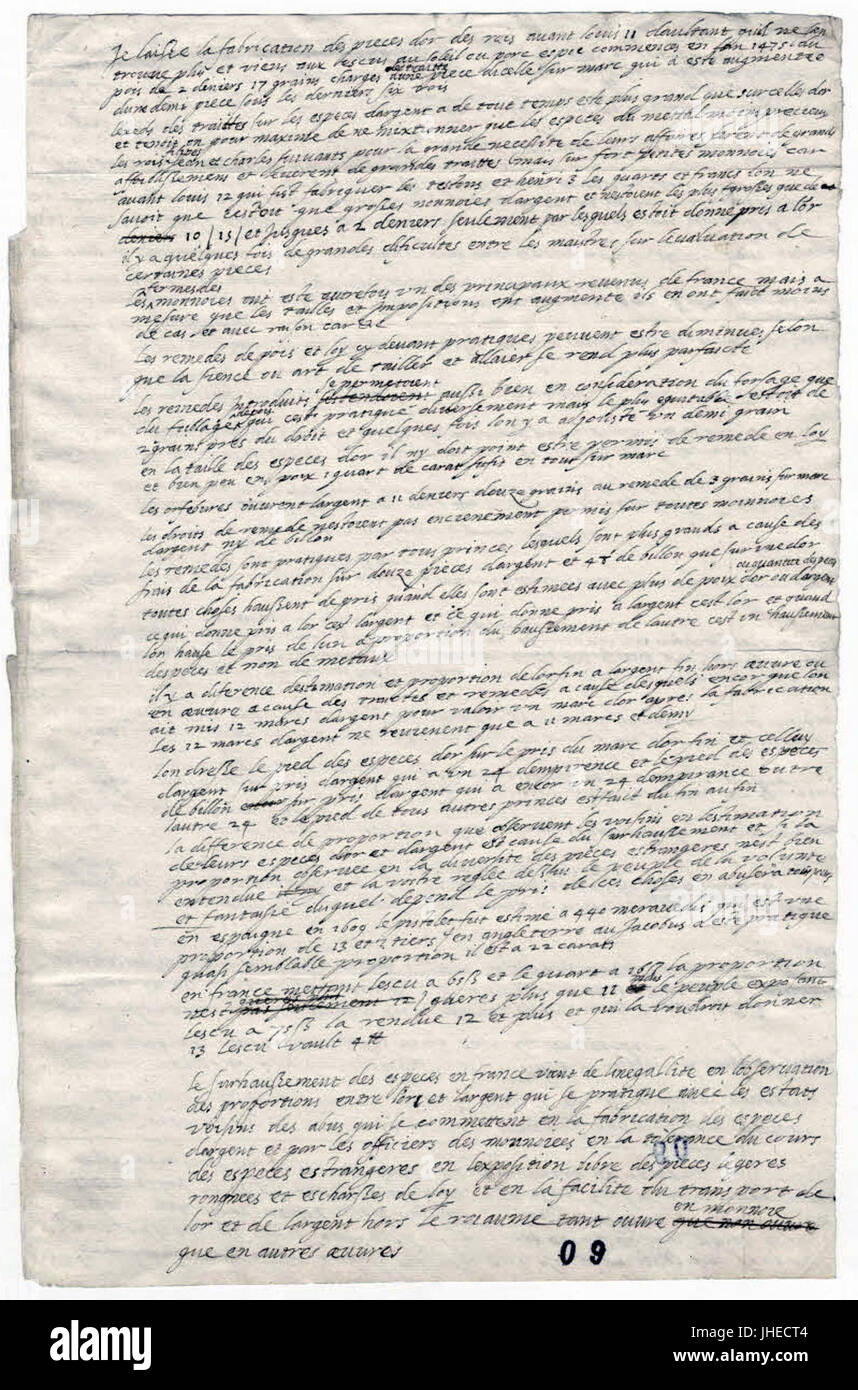 Je laisse la fabrication des pieces dor des rois avant louis 11 daultant quil ne sen
trouve plus et viens aux escus au soleil ou porc espic commences en lan 1475 du
pois de 2 deniers 17 grains charges de traitte dune piece dicelle sur marc qui a este augmentee
dune demi piece sous les derniers six rois
lexeds des traittes sur les especes dargent a de tout temps este plus grand que sur celles dor
et tenoit on pour maxime de ne mixtionner que les especes du mettal moins precieux
les rois Jean et charles suivants pour la grande necessite de leurs affaires de grands
affoiblissemens et leverent de grandes traittes mais sur fort petites monnoies car
avant louis 12 qui fist fabriquer les testons et henri 3 les quarts et francs lon ne
savoit que cestoit que grosses monnoies dargent et nestoient les plus grosses que de
deniers 10 / 15 / et jusques a 2 deniers seulement par lesquels estoit donne pris a lor
il y a quelques fois de grandes dificultes entre les maistres sur levaluation de
certaines pieces
fermes des
les monnoies ont este autrefois un des principaux revenus de france mais a
mesure que les tailles et impositions ont augmente ils en ont faict moins
de cas et avec raison car &c
Les remedes de pois et loy cy devant pratiques peuvent estre diminues selon
que la sience ou art de tailler et allaier se rend plus parfaicte
se permettoient
les remedes introduits aussi bien en consideration du forsage que
du taillage de pois qui cest pratique diversement mais le plus equitable estoit de
2 grains pres du droit et quelques fois lon y a adjouste un demi grain
en la taille des especes dor il ny doit point estre permis de remede en loy
et bien peu en poix 1 quart de carat sufit en tout sur marc
les orfebures ouvrent largent a 11 deniers douze grains au remede de 3 grains sur marc
les droits de remede nestoient pas anciennement permis sur toutes monnoies
dargent ny de billon
les remedes sont pratiques par tous princes lesquels sont plus grands a cause des
frais de la fabrication sur douze pieces dargent et 48 de billon que sur une dor
ou quantité despeces
toutes choses haussent de pris quand elles sont estimees avec plus de poix dor ou dargent
ce qui donne pris a lor cest largent et ce qui donne pris a largent cest lor et quand
lon hause le pris de lun a proportion du haussement de lautre cest un haussement
despeces et non de metaux
il y a diference destimation et proportion de lor fin a largent fin hors œuvre ou
en œuvre a cause des traictes et remedes a cause desquels encor que lon
ait mis 12 marcs dargent pour valoir un marc dor apres la fabrication
les 12 marcs dargent ne reviennent que a 11 marcs et demy
lon dresse le pied des especes dor sur le pris du marc dor fin et celluy
dargent sur pris dargent qui a un 24 dempirence et le pied des especes
de billon sur pris dargent qui a encor un 24 dempirance outre
lautre 24 et le pied de tous autres princes est fait du fin au fin
la difference de proportion que observent les voisins en lestimation
de leurs especes dor et dargent est cause du surhaussement et si la
proportion observee en la diversite des pieces estrangeres nest bien
entendue et la vostre reglee dessus le peuple de la volunte
et fantaisie duquel depend le pris de ces choses en abusera tousjours
en espaigne en 1609 le pistolet fut estimé a 440 meravedis qui est une
proportion de 13 et 2 tiers / en angleterre au Jacobus a esté pratique
quasi semblable proportion il est a 22 carats
en france mettant lescu a 65ß et le quart a 16ß la proportion
nest gueres plus que 11 tandis le peuple exposant
lescu a 75ß la rendue 12 et plus et qui la voudroit donner
13 lescu vault 4tt
le surhaussement des especes en france vient de linegallite en lobservation
des proportions entre lor et largent qui se pratique avec les estats
voisins des abus qui se commettent en la fabrication des especes
dargent et par les officiers des monnoiees en la tolerance du cours
des especes estrangeres en lexposition libre des pieces legeres
rongnees et escharses de loy et en la facilite du transport de
en monnoie
lor et de largent hors le roiaume tant ouvre que non ouvre
que en autres œuvres
09
alamy
Image ID: JHECT4
www.alamy.com